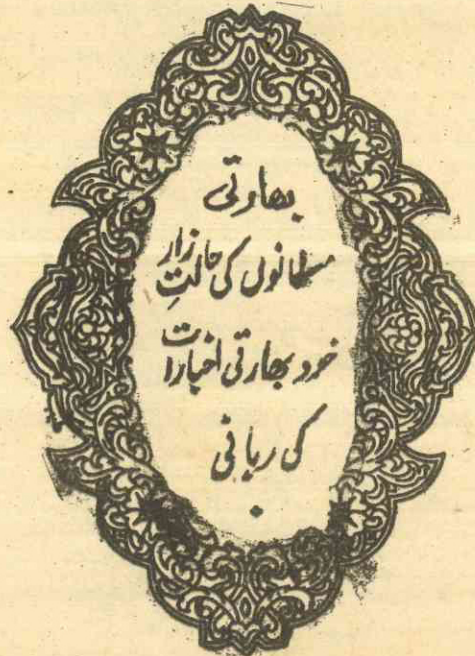 بھارتی
مسلمانوں کی حالتِ زار
خود بھارتی اخبارات
کی زبانی